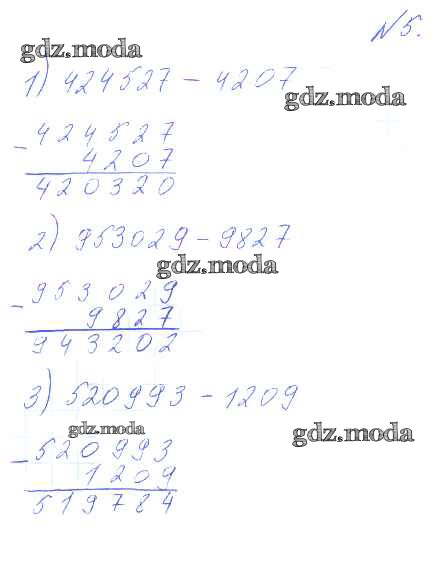 №5.
gdz.moda
1) 424527 - 4207
gdz.moda
-424527
4207
420320
2) 953029 - 9827
gdz.moda
-953029
9827
943202
3) 520993 - 1209
gdz.moda
gdz.moda
-520993
1209
519784